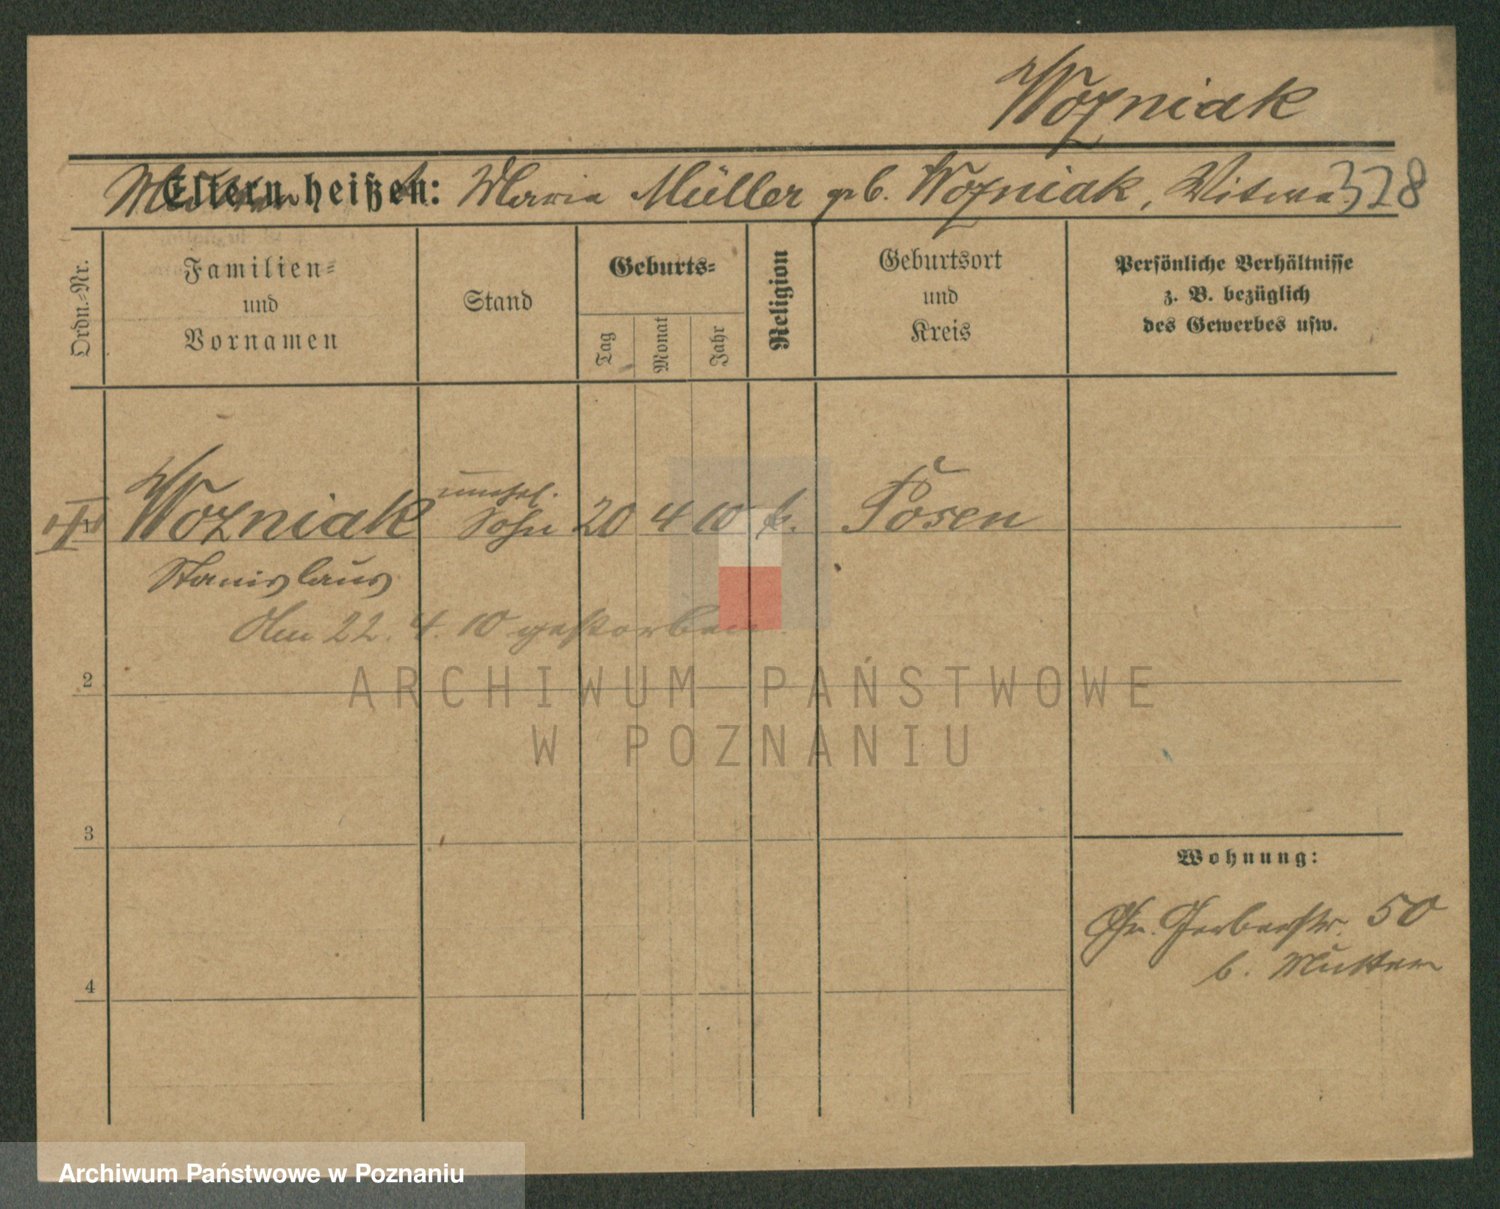 Wozniak
Eltern heißen: Maria Müller geb. Wozniak, Witwe 328
Ordn.-Nr.
Familien-
und
Vornamen
Stand
Geburts-
Tag
Monat
Jahr
Religion
Geburtsort
und
Kreis
Persönliche Verhältnisse
z. B. bezüglich
des Gewerbes usw.
1 Wozniak unehel. Sohn 20 4 10 k. Posen
Stanislaus
Am 22. 4. 10 gestorben.
ARCHIWUM PAŃSTWOWE
W POZNANIU
2
3
Wohnung:
Gerberstr. 50
b. Mutter
4
Archiwum Państwowe w Poznaniu